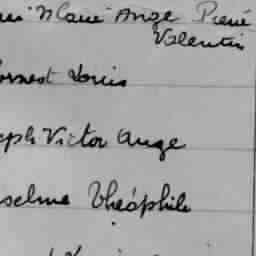 Marie Ange Pierre
Valentin
Ernest Louis
eph Victor Ange
selme Théophile